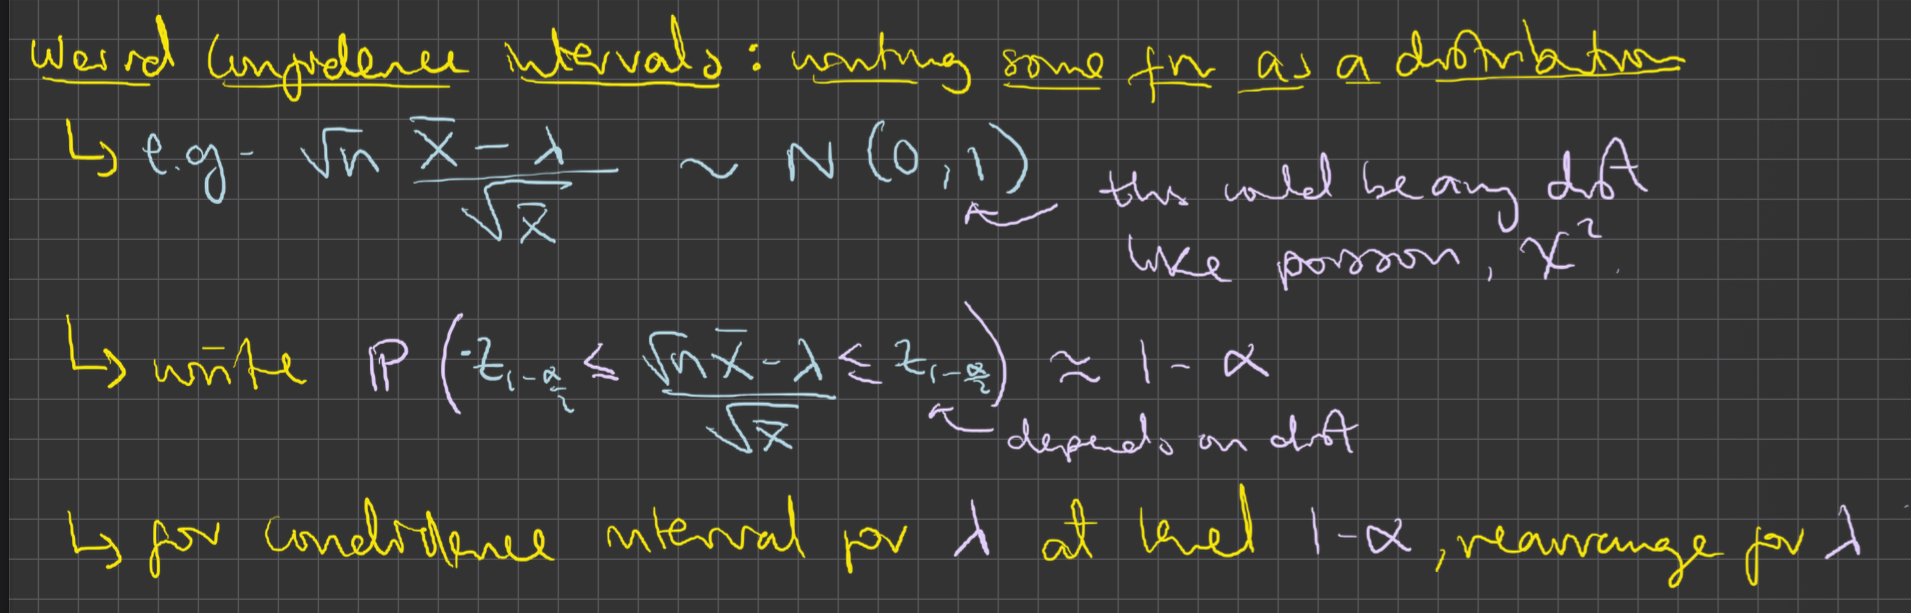 weird confidence intervals: writing some fn as a distribution
↳ e.g- √n (X̄ - λ)/√X̄ ~ N(0,1) ↖ this could be any dist
like poisson, χ².
↳ write ℙ(-z_{1-α/2} ≤ (√n X̄ - λ)/√X̄ ≤ z_{1-α/2}) ≃ 1 - α
↖ depends on dist
↳ for confidence interval for λ at level 1-α, rearrange for λ